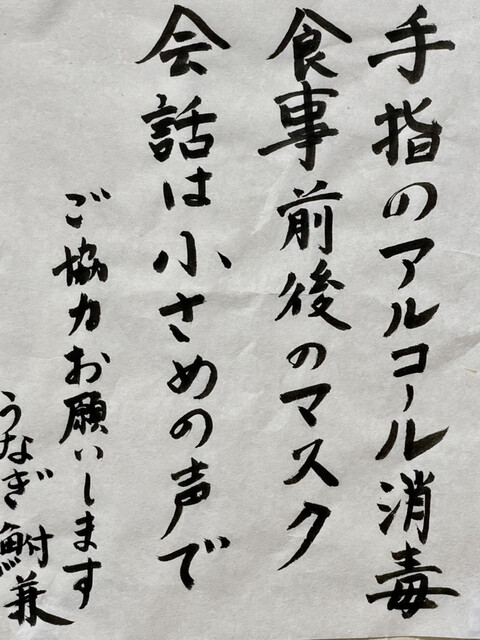 手指のアルコール消毒
食事前後のマスク
会話は小さめの声で
ご協力お願いします
うなぎ鮒兼